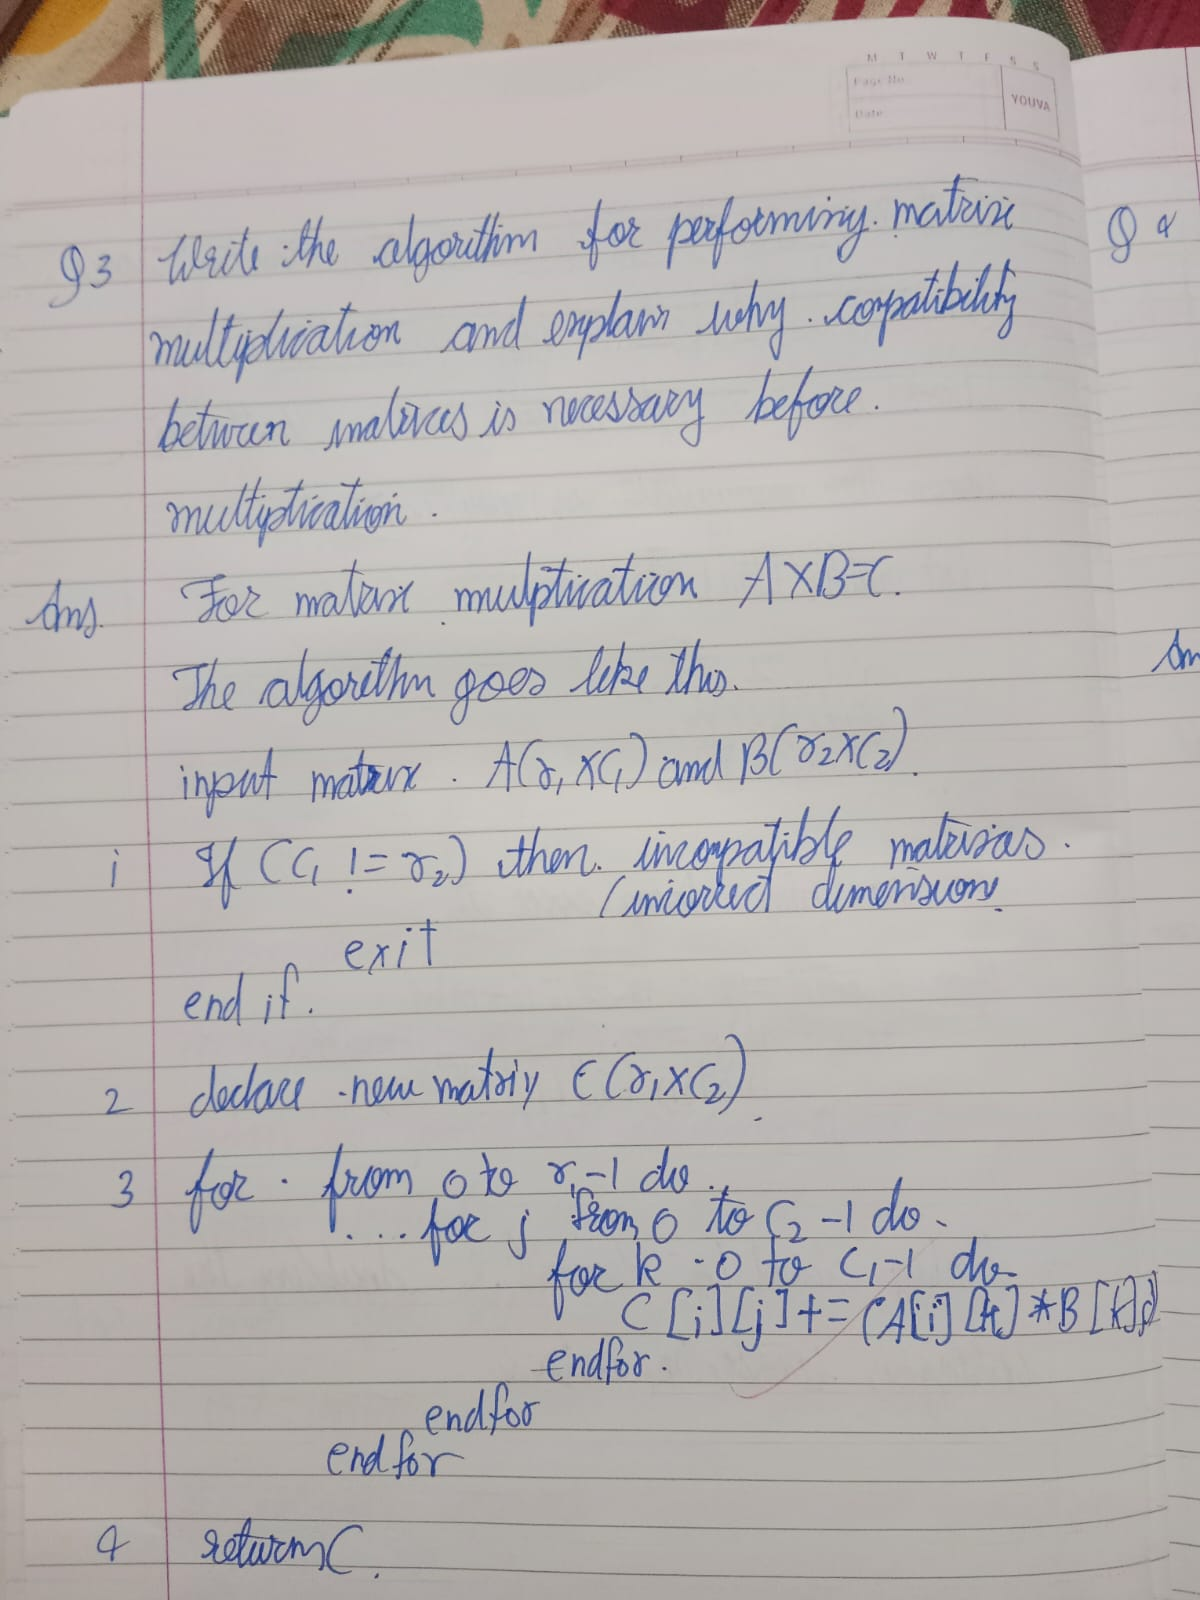 M T W T F S S
Page No.
Date
YOUVA
Q3 Write the algorithm for performing matrix
multiplication and explain why compatibility
between matrices is necessary before
multiplication.
Ans. For matrix mulptication A×B=C.
The algorithm goes like this.
input matrix. A(r₁ × C₁) and B(r₂×C₂).
i If (C₁ != r₂) then incompatible matrisas.
(incorrect dimensions
exit
end if.
2 declare new matrix C(r₁×C₂)
3 for from 0 to r₁-1 do.
.... for j from 0 to C₂-1 do.
for k 0 to C₁-1 do
C[i][j]+=(A[i][k]*B[k]j
endfor.
endfor
endfor
4 return C.
Q4